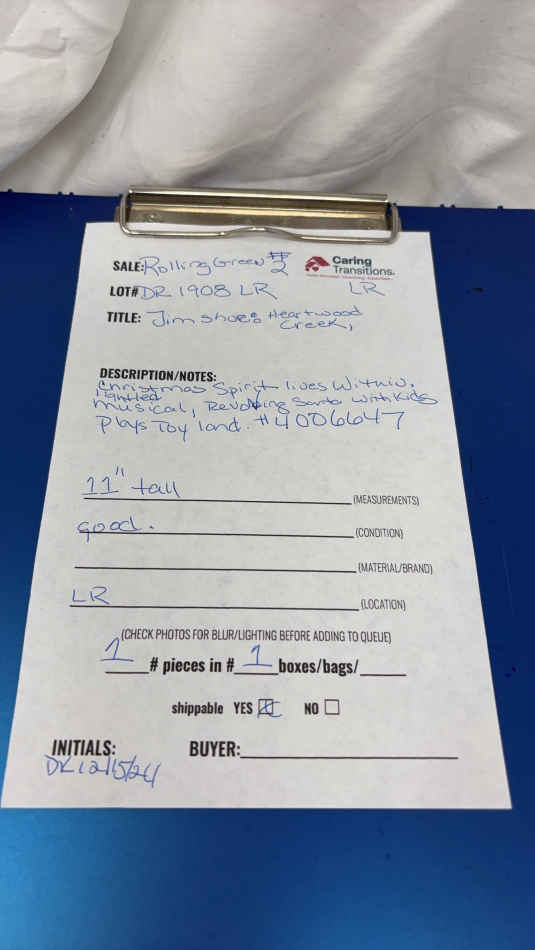 SALE: Rolling Green #2
Caring Transitions.
LOT# DR 1908 LR
LR
TITLE: Jim Shore: Heartwood
Creek,
DESCRIPTION/NOTES:
Christmas Spirit lives Within.
lightted
musical, Revolving Santa With Kids
Plays Toy land. #4006647
11" tall (MEASUREMENTS)
good. (CONDITION)
(MATERIAL/BRAND)
LR (LOCATION)
(CHECK PHOTOS FOR BLUR/LIGHTING BEFORE ADDING TO QUEUE)
1 # pieces in # 1 boxes/bags/
shippable YES NO
INITIALS: BUYER:
DK 12/15/24